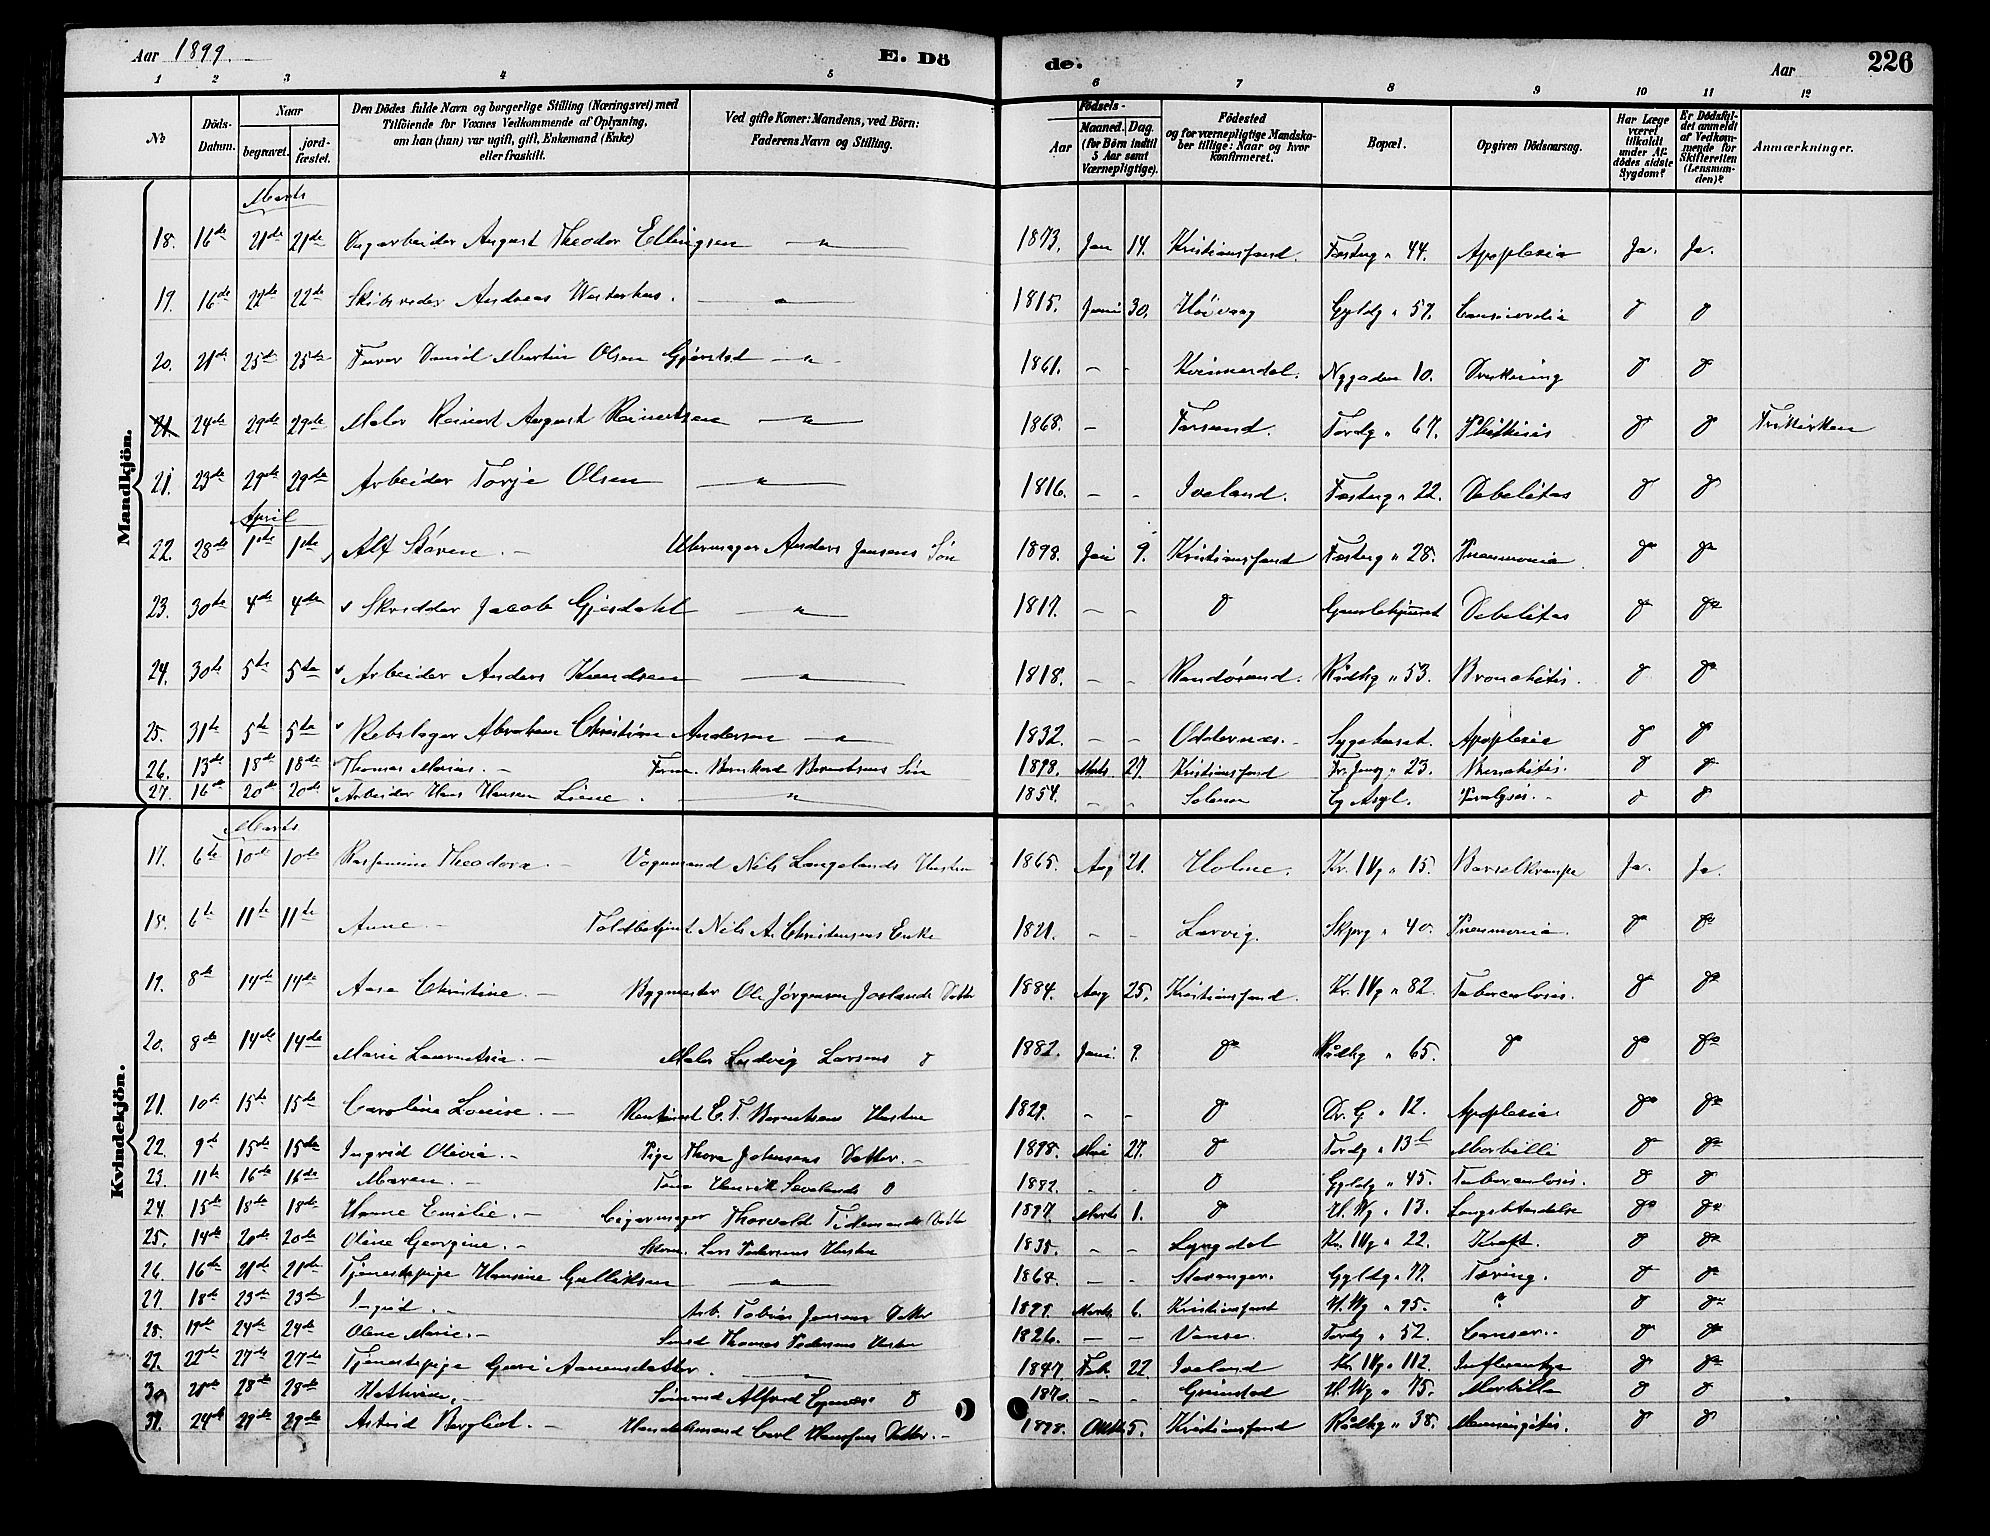 Aar 1899.
E. Dö
de.
Aar
226
1 2 3 4 5 6 7 8 9 10 11 12
No
Döds-Datum.
Naar
begravet. jordfæstet.
Den Dödes fulde Navn og borgerlige Stilling (Næringsvei) med Tilföiende for Voxnes Vedkommende af Oplysning, om han (hun) var ugift, gift, Enkemand (Enke) eller fraskilt.
Ved gifte Koner: Mandens, ved Börn: Faderens Navn og Stilling.
Aar
Födsels-
Maaned. Dag.
(for Börn indtil 5 Aar samt Værnepligtige).
Födested og for værnepligtige Mandskaber tillige: Naar og hvor konfirmeret.
Bopæl.
Opgiven Dödsaarsag.
Har Læge været tilkaldt under Afdödes sidste Sygdom?
Er Dödsfaldet anmeldt af Vedkommende for Skifteretten (Lensmanden)?
Anmærkninger.
Mandkjön.
Marts
18. 16de 21de 21de August Theodor Ellingsen — " — 1873. Jan 14. Kristianssand. Fæstng " 44. Apoplexia Ja. Ja.
19. 16de 22de 22de Andreas Westerhus. — " — 1815. Juni 30. Höivaag Gyldg " 57. d d
20. 21de 25de 25de Farver Daniel Martin Olsen Gjerstad — " — 1861. - - Kvinesdal. Nygaden 10. Drukning d d
21. 24de 29de 29de Maler Reinert August Reinertsen — " — 1868. - Farsund. Tordg " 67. Phthisis d d Frikirken
21. 23de 29de 29de Arbeider Torje Olsen — " — 1816. - - Iveland. Fæstng " 22. Debilitas d d
April
22. 28de 1ste 1ste Alf Steen. - Uhrmager Anders Jensens Sön 1898. Juni 9. Kristianssand Fæstng " 28. Pneumonia d do
23. 30de 4de 4de Skrædder Jacob Gjesdahl — " — 1817. - - d Gamlehjemmet Debilitas d do
24. 30de 5te 5te Arbeider Anders Knudsen — " — 1818. - - Randösund. Rådhg " 53. Bronchitis. d do
25. 31te 5te 5te Rebslager Abraham Christian Andersen — " — 1832. - - Oddernæs. - Sygehuset. Apoplexia d d
26. 13de 18de 18de Thomas Marius. - Berntsens Sön 1898. Marts 27. Kristianssand " 23. Bronchitis. d d
27. 16de 20de 20de Arbeider Hans Hansen — " — 1854. - - Eg Asyl. Paralysis. - d d
Kvindekjön.
Marts
17. 6te 10de 10de Theodora - Vognmand Nils Langelands Hustru 1865. Aug 21. Holme. Kr. IVg " 15. Barselkrampe Ja. Ja.
18. 6te 11te 11te Anne - Toldbetjent Nils A. Christensens Enke 1821. - - Larvig. Skjprg " 40. Pneumonia. d do
19. 8de 14de 14de Aase Christine. - Bygmester Ole Jörgensen Joslands Datter 1884. Aug 25. Kristianssand. Kr. IVg " 82. Tuberculosis. d do
20. 8de 14de 14de Marie Laurentzia. - Maler Ludvig Larsens d 1882. Juni. 9. do Rådhg " 65. d do do
21. 10de 15de 15de Caroline Louise. - Berntsens Hustru 1821. - - d Dr. G " 12. Apoplexia do do
22. 9de 15de 15de Ingrid Olivia. - Pige Thora Johnsens Datter. - 1898. Mai 27. d Tordg " 13b Morbilli d do
23. 11te 16de 16de Maren. - Henrik d 1882. - - d Gyldg " 45. Tuberculosis. d d
24. 15de 18de 18de Hanne Emilie. - Cigarmager Thorvald Tidemands Datter 1897. Marts 1. d H. Wg " 13. do do
25. 14de 20de 20de Oline Georgine. - Lars Pedersens Hustru 1835. - - Lyngdal Kr. IVg " 22. Kræft. d do
26. 16de 21de 21de Tjenestepige Hansine Gulliksen — " — 1868. - - Stavanger. Gyldg " 77. Tæring. d do
27. 18de 23de 23de Ingrid. - Arb. Tobias Jensens Datter 1899. Marts 6. Kristianssand H. Wg " 95. ? d do
28. 19de 24de 24de Oline Marie. - Smed Thomas Pedersens Hustru 1826. - - Vanse. Tordg " 52. Cancer. d do
29. 22de 27de 27de Tjenestepige Guri Aanensdatter. — " — 1847. Feb. 22. Iveland Kr. IVg " 112. Influentza d do
30. 21de 28de 28de Kathrine. - Sömand Alfred d 1870. - - Grimstad H. Wg " 75. Morbilli d d
31. 24de 29de 29de Astrid Bergliot. - Handelsmand Carl Hansens Datter. - 1898. Oktb 5. Kristianssand Rådhg " 38. Meningitis. d d